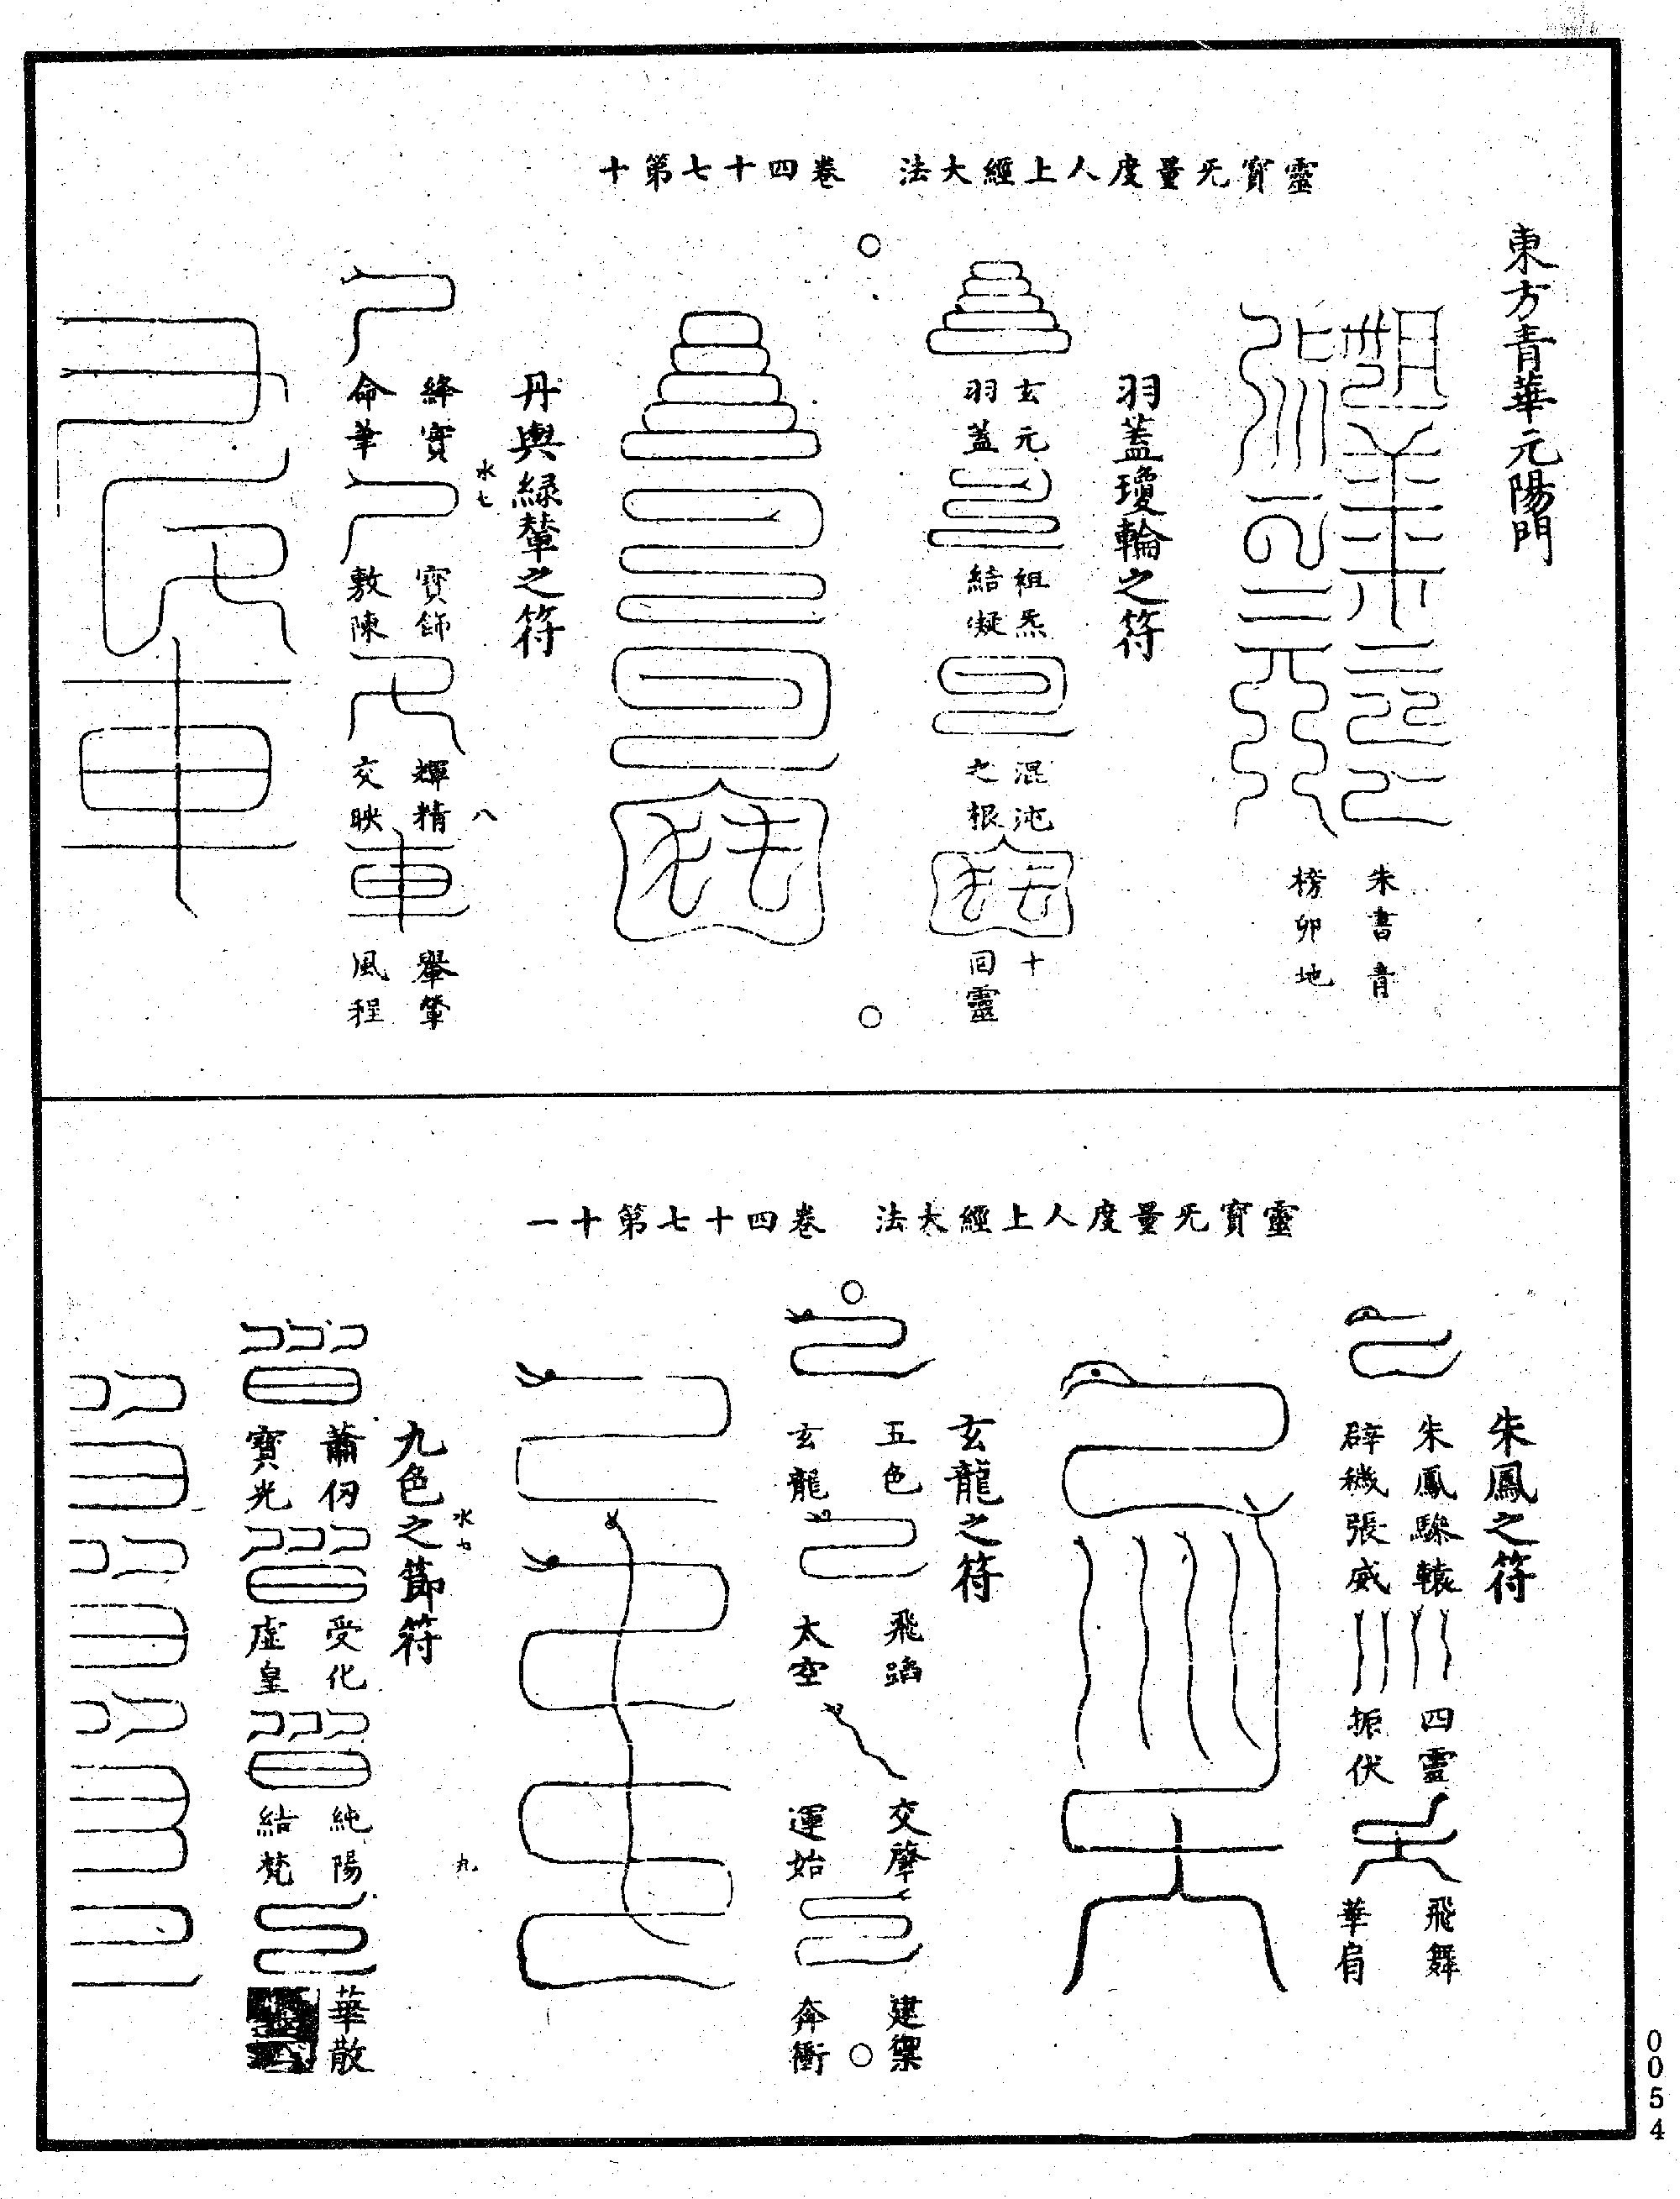 靈寶无量度人上經大法　卷四十七第十
東方青華元陽門
朱書青
榜卯地
羽蓋瓊輪之符
玄元
羽蓋
祖炁
結凝
混沌
之根
十
回靈
丹輿綠輦之符
水七
八
絳實
命筆
寶飾
敷陳
輝精
交映
風程
靈寶无量度人上經大法　卷四十七第十一
朱鳳之符
朱鳳驂轅
辟穢張威
四靈
振伏
飛舞
華肩
玄龍之符
五色
玄龍
飛蹈
太空
交肇
運始
建
奔衝
九色之節符
水七
九
寶光
受化
虛皇
純陽
結梵
華散
0054